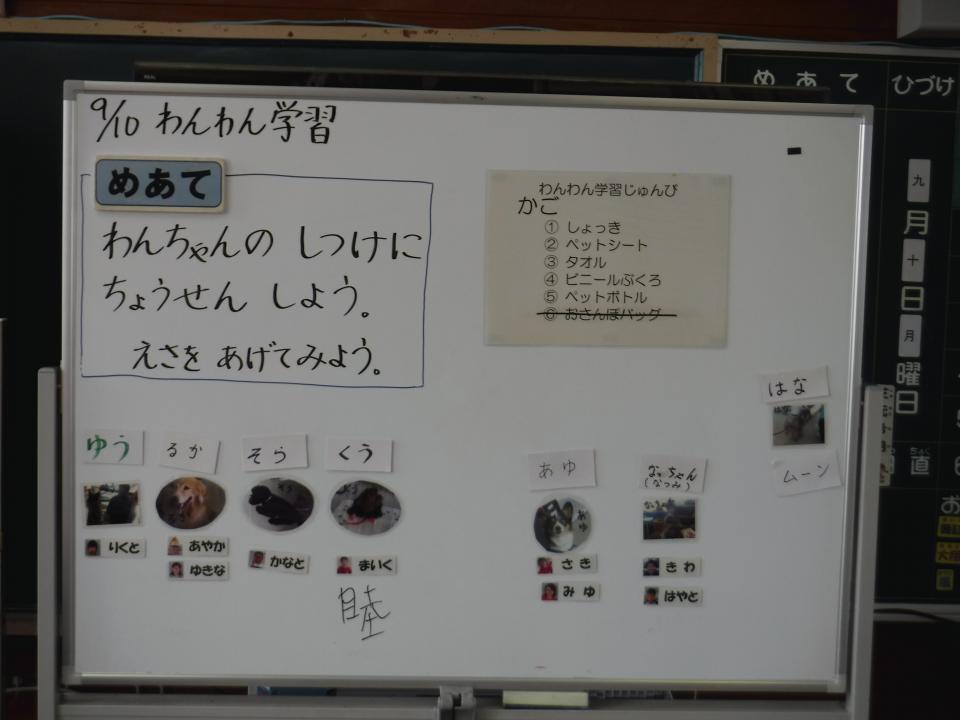 9/10 わんわん学習
めあて
わんちゃんの しつけに
ちょうせん しよう。
えさを あげてみよう。
わんわん学習じゅんび
かご
① しょっき
② ペットシート
③ タオル
④ ビニールぶくろ
⑤ ペットボトル
⑥ おさんぽバッグ
はな
ムーン
ゆう
りくと
るか
あやか
ゆきな
そら
かなと
くう
まいく
あゆ
あゆ
さき
みゆ
なっちゃん
(なつみ)
きわ
はやと
めあて
ひづけ
九
月
十
日
月
曜
日
直